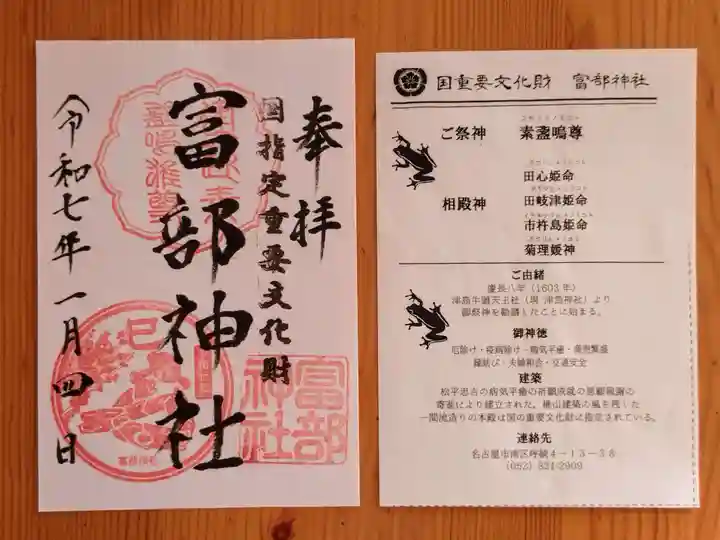 奉拝
国指定重要文化財
富部神社
令和七年一月四日
巳
富部神社
国重要文化財 富部神社
ご祭神 素盞嗚尊
相殿神
田心姫命
田岐津姫命
市杵島姫命
菊理媛神
ご由緒
慶長八年(1603年)
津島牛頭天王社(現 津島神社)より
御祭神を勧請したことに始まる。
御神徳
厄除け・疫病除け・病気平癒・商売繁盛
縁結び・夫婦和合・交通安全
建築
松平忠吉の病気平癒の祈願成就の
寄進により建立された。桃山建築の風を残した
一間流造りの本殿は国の重要文化財に指定されている。
連絡先
名古屋市南区呼続4-13-38
(052)821-2909